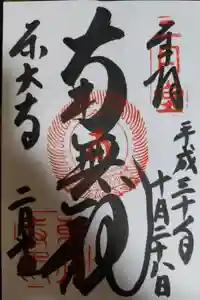 奉拝
平成三十年
十月二十八日
南無観
東大寺 二月堂